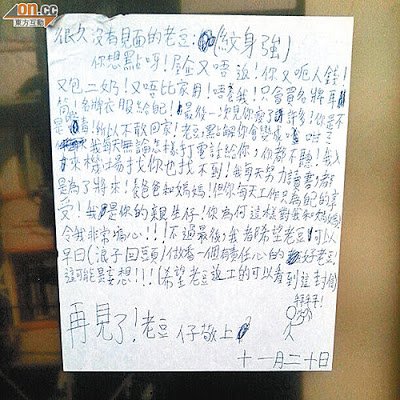 on.cc
東方互動
很久沒有見面的老豆:(紋身強)
你想點呀!屋企又唔返!你又呃人錢!
又包二奶!又唔比家用!唔養我!只會買名牌耳
筒!名牌衣服給自己!最後一次見你瘦了許多!你是不
是 毒 所以不敢回家!老豆點解你會變成咁
我每天無論怎樣打電話給你!你都不聽!我入
來機場找你也找不到!我每天努力讀書 都
是為了將來!養爸爸和媽媽!但你每天工作 為自己的享
受!我是你的親生仔!你為何這樣對我和媽媽!
令我非常痛心!!!不過最後!我都希望老豆可以
早日(浪子回頭)做番一個有責任心的好老豆!
這可能是妄想!!!(希望老豆 的可以看到這封信)
拜拜!
再見了!老豆 仔敬上
十一月二十日